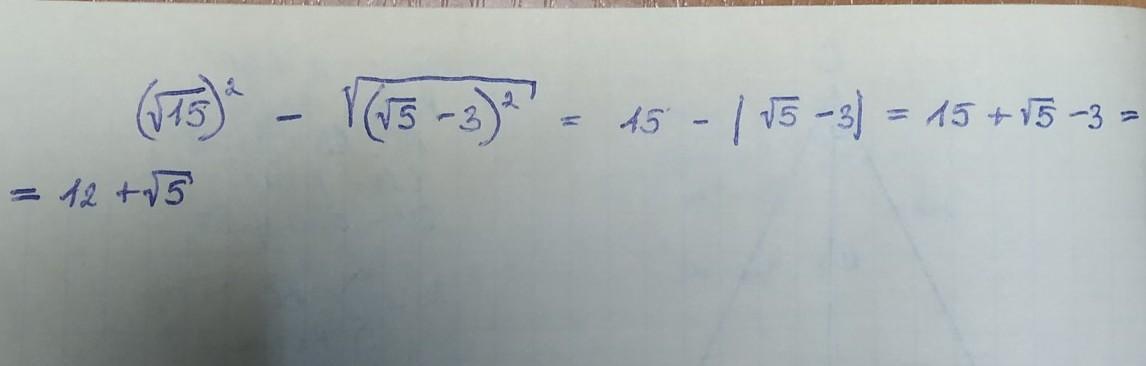 (√15)² - √(√5 - 3)² = 15 - |√5 - 3| = 15 + √5 - 3 =
= 12 + √5